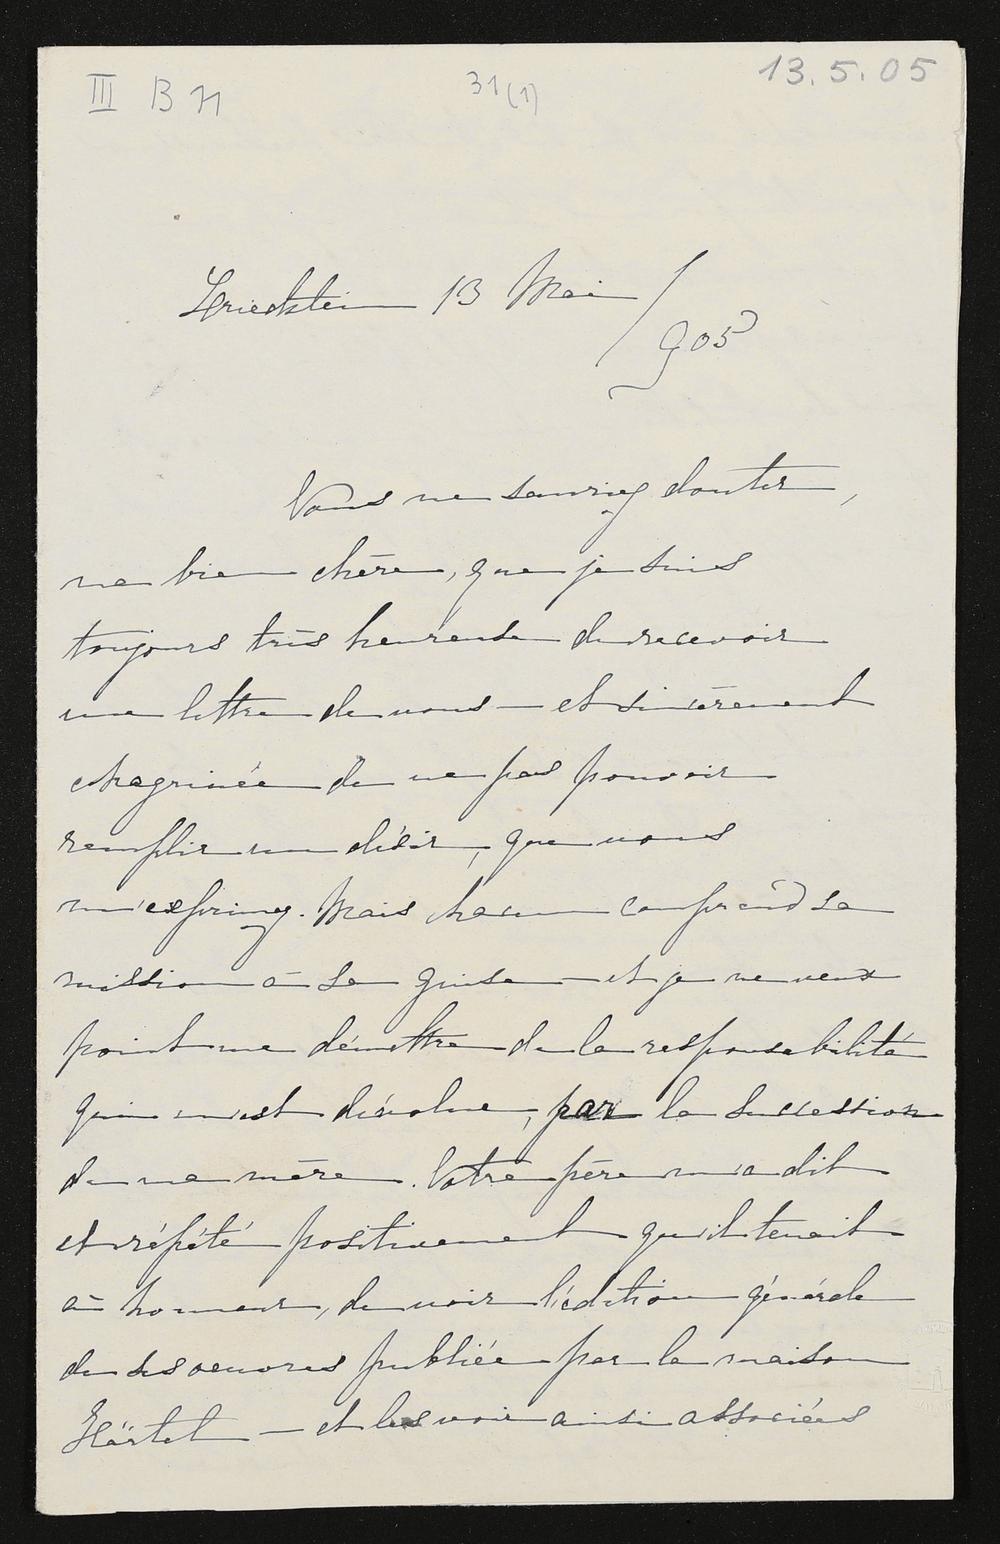 III B 71
31(1)
13.5.05
Friedstein 13 Mai /
905
Vous ne sauriez douter,
ma bien chère, que je suis
toujours très heureuse de recevoir
une lettre de vous — et sincèrement
chagrinée de ne pas pouvoir
remplir un désir, que vous
m'exprimez. Mais chacun comprend sa
mission à sa guise — et je ne veux
point me démettre de la responsabilité
qui m'est dévolue, par la succession
de ma mère. Votre père m'a dit
et répété positivement qu'il tenait
à honneur, de voir l'édition générale
de ses oeuvres publiée par la maison
Härtel — et les voir ainsi associées